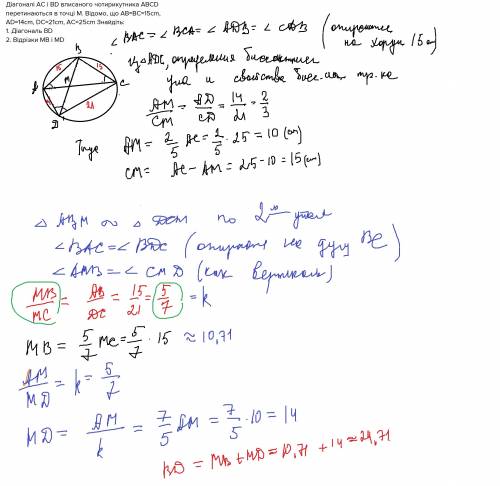 Діагоналі AC і BD вписаного чотирикутника ABCD
перетинаються в точці M. Відомо, що AB=BC=15cm,
AD=14cm, DC=21cm, AC=25cm Знайдіть:
1. Діагональ BD
2. Відрізки MB і MD
∠BAC=∠BCA=∠ADB=∠CDB (опираются
на хорды 15)
Из △ADC, определения биссектрисы
угла и свойства бисс-сы тр-ка
AM/CM = AD/CD = 14/21 = 2/3
Тогда AM = 2/5 AC = 2/5 · 25 = 10 (см)
CM = AC - AM = 25 - 10 = 15 (см)
B
15
15
A
M
C
14
21
D
△ABM ∾ △DCM по 2м углам
∠BAC = ∠BDC (опираются на дугу BC)
∠AMB = ∠CMD (как вертикальн)
MB/MC = AB/DC = 15/21 = 5/7 = k
MB = 5/7 MC = 5/7 · 15 ≈ 10,71
AM/MD = k = 5/7
MD = AM/k = 7/5 AM = 7/5 · 10 = 14
BD = MB + MD = 10,71 + 14 ≈ 24,71